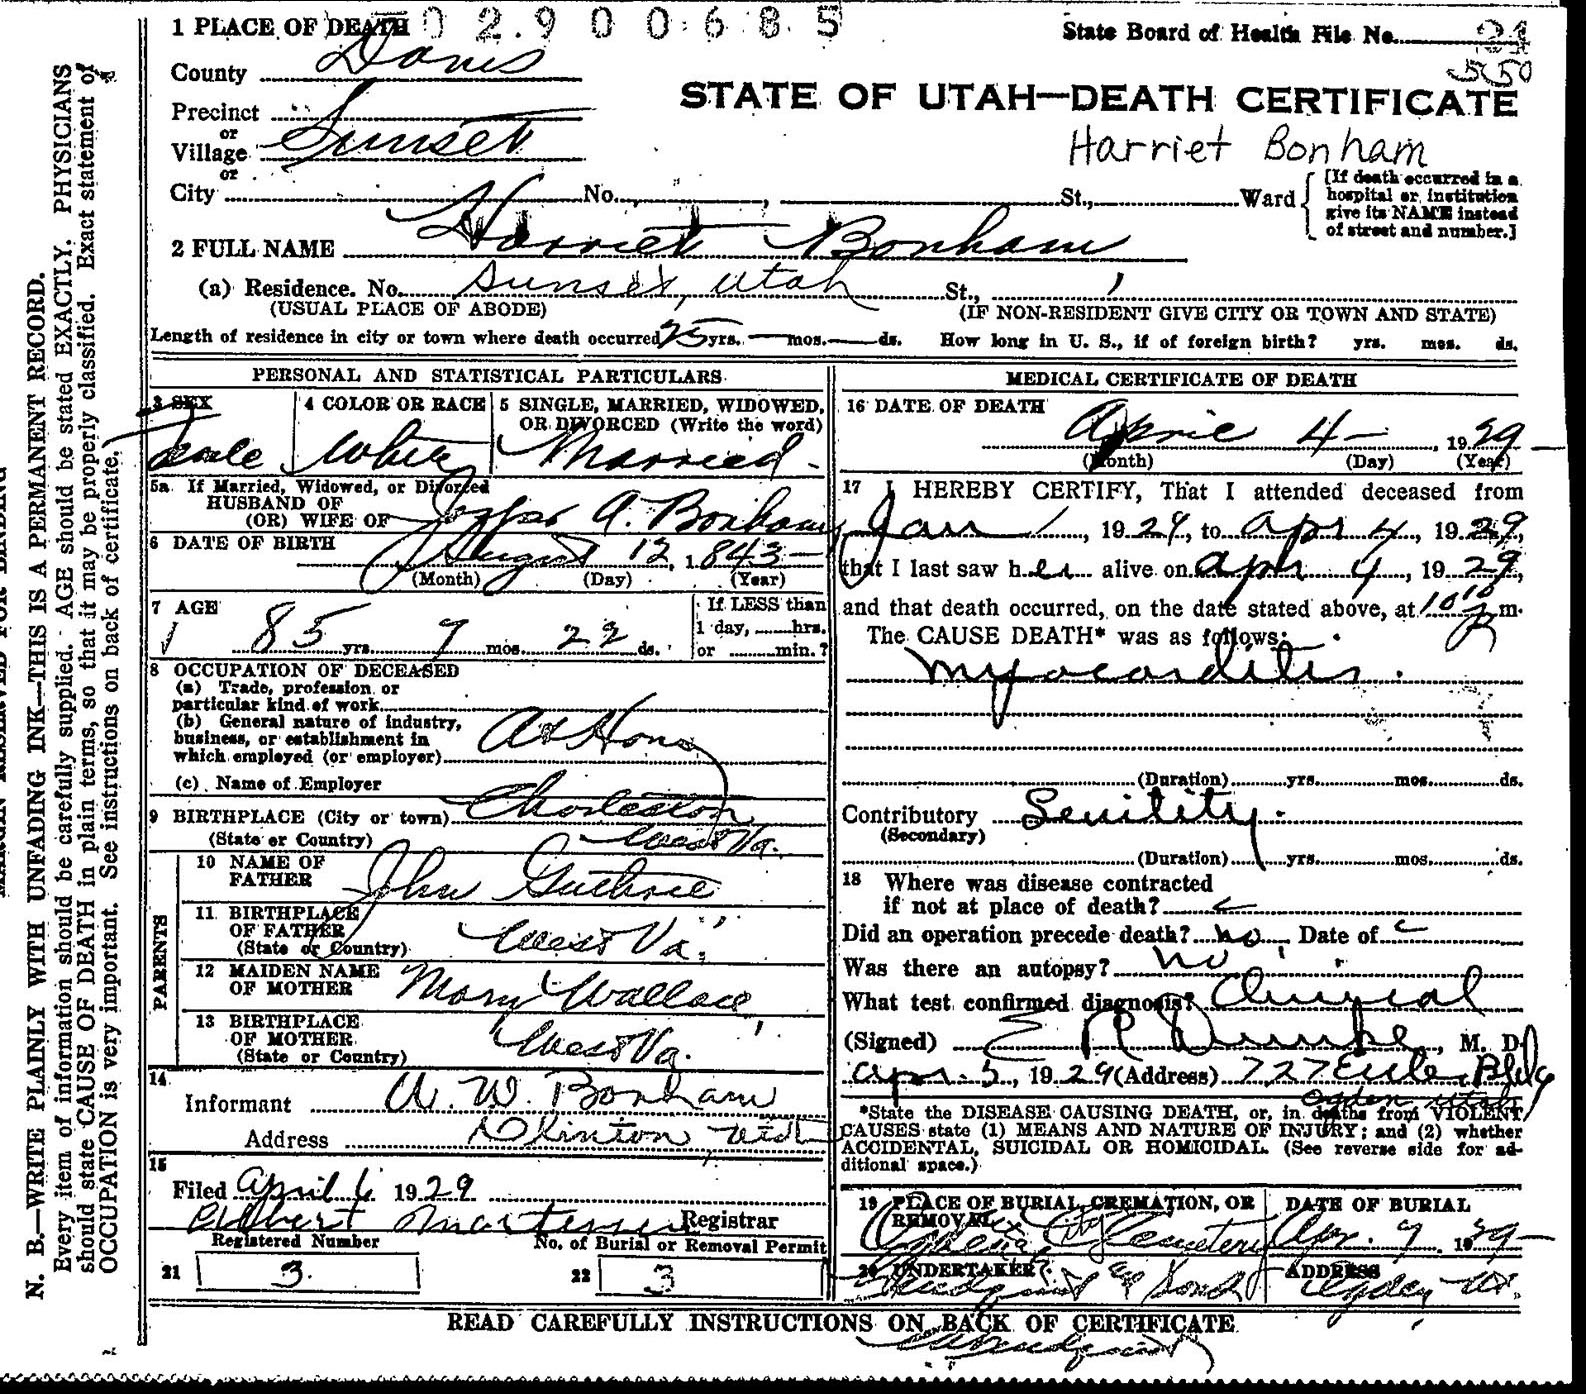 1 PLACE OF DEATH 02900685
State Board of Health File No. 21
550
County Davis
STATE OF UTAH—DEATH CERTIFICATE
Precinct
or
Village Sunset
or
Harriet Bonham
City No. St., Ward
[If death occurred in a hospital or institution give its NAME instead of street and number.]
2 FULL NAME Harriet Bonham
(a) Residence. No. Sunset, Utah St.,
(USUAL PLACE OF ABODE) (IF NON-RESIDENT GIVE CITY OR TOWN AND STATE)
Length of residence in city or town where death occurred 25 yrs. — mos. — ds. How long in U. S., if of foreign birth? yrs. mos. ds.
PERSONAL AND STATISTICAL PARTICULARS
3 SEX
4 COLOR OR RACE White
5 SINGLE, MARRIED, WIDOWED,
OR DIVORCED (Write the word)
Married
5a If Married, Widowed, or Divorced
HUSBAND OF
(OR) WIFE OF A. Bonham
6 DATE OF BIRTH August 12, 1843
(Month) (Day) (Year)
7 AGE
85 yrs. 7 mos. 22 ds.
If LESS than
1 day, hrs.
or min.?
8 OCCUPATION OF DECEASED
(a) Trade, profession or
particular kind of work
(b) General nature of industry,
business, or establishment in
which employed (or employer) At Home
(c) Name of Employer
9 BIRTHPLACE (City or town) Charleston
(State or Country) West Va.
PARENTS
10 NAME OF
FATHER John Guthrie
11 BIRTHPLACE
OF FATHER
(State or Country) West Va.
12 MAIDEN NAME
OF MOTHER Mary Wallace
13 BIRTHPLACE
OF MOTHER
(State or Country) West Va.
14
Informant A. W. Bonham
Address Clinton Utah
15
Filed April 6 1929
Albert Martensen Registrar
Registered Number No. of Burial or Removal Permit
21 3 22 3
MEDICAL CERTIFICATE OF DEATH
16 DATE OF DEATH
April 4 — , 1929
(Month) (Day) (Year)
17 I HEREBY CERTIFY, That I attended deceased from
Jan 1, 1929, to apr 4, 1929,
that I last saw her alive on apr 4, 1929,
and that death occurred, on the date stated above, at 10 10 P m.
The CAUSE DEATH* was as follows:
myocarditis.
(Duration) yrs. mos. ds.
Contributory Senility.
(Secondary)
(Duration) yrs. mos. ds.
18 Where was disease contracted
if not at place of death?
Did an operation precede death? no Date of
Was there an autopsy? no
What test confirmed diagnosis? Clinical
(Signed) E R Dumke, M. D.
apr. 5, 1929 (Address) 727 Eccles Bldg
Ogden Utah
*State the DISEASE CAUSING DEATH, or, in deaths from VIOLENT
CAUSES state (1) MEANS AND NATURE OF INJURY; and (2) whether
ACCIDENTAL, SUICIDAL OR HOMICIDAL. (See reverse side for ad-
ditional space.)
19 PLACE OF BURIAL, CREMATION, OR
REMOVAL
City Cemetery
DATE OF BURIAL
Apr. 7 1929
20 UNDERTAKER
Lindquist & Sons
ADDRESS
Ogden, Ut.
READ CAREFULLY INSTRUCTIONS ON BACK OF CERTIFICATE
Lindquist
MARGIN RESERVED FOR BINDING
N. B.—WRITE PLAINLY WITH UNFADING INK—THIS IS A PERMANENT RECORD.
Every item of information should be carefully supplied. AGE should be stated EXACTLY. PHYSICIANS
should state CAUSE OF DEATH in plain terms, so that it may be properly classified. Exact statement of
OCCUPATION is very important. See instructions on back of certificate.